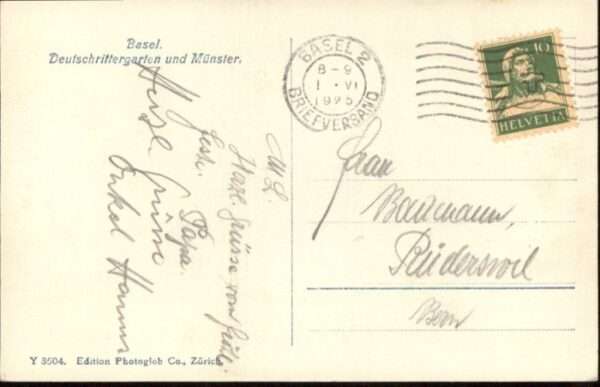 Basel.
Deutschrittergarten und Münster.
BASEL 2
8-9
1 · VI
1925
BRIEFVERSAND
10
HELVETIA
M. L.
Grüsse von
Papa.
Grüsse
Onkel Hanns
Frau
Baumann,
Rüderswil
Bern
Y 3504. Edition Photoglob Co., Zürich